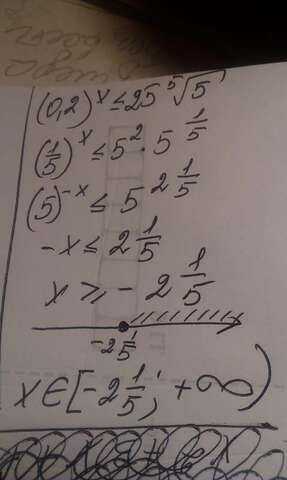 (0,2)^x ≤ 25 ⁵√5
(1/5)^x ≤ 5^2 · 5^(1/5)
(5)^(-x) ≤ 5^(2 1/5)
-x ≤ 2 1/5
x ⩾ - 2 1/5
-2 1/5
x ∈ [-2 1/5; +∞)